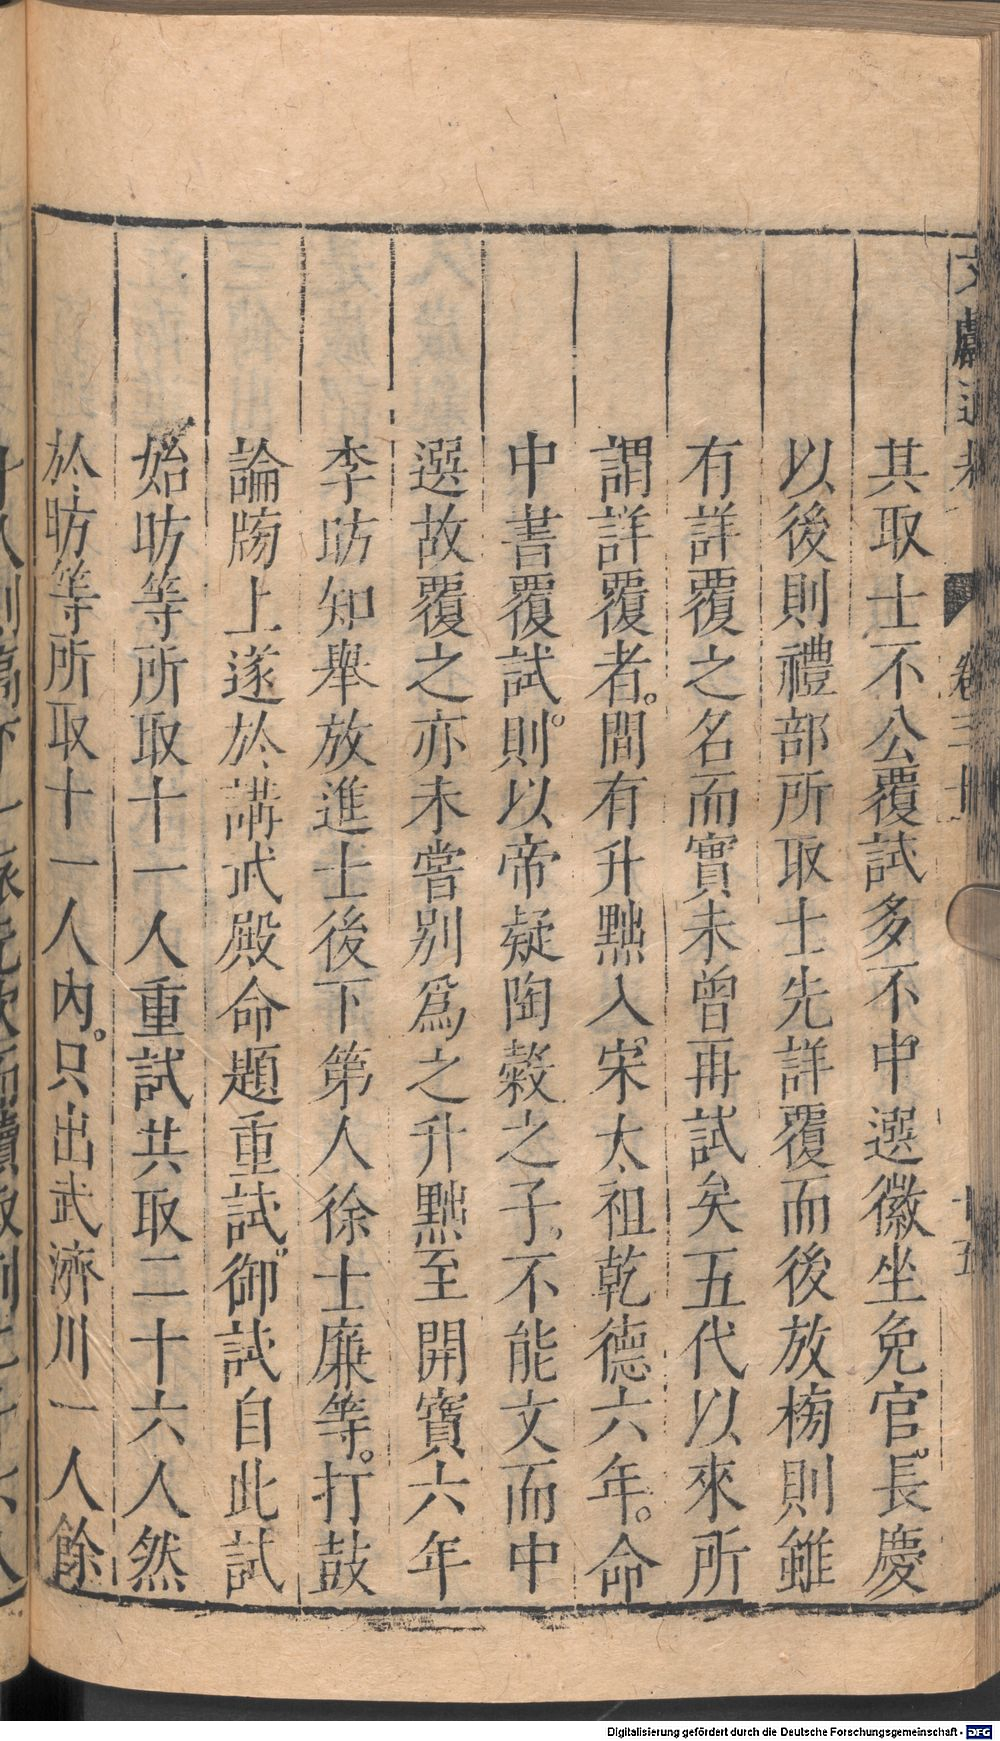 文獻通考 卷三十 十五
其取士不公覆試多不中選徽坐免官長慶
以後則禮部所取士先詳覆而後放榜則雖
有詳覆之名而實未曾再試矣五代以來所
謂詳覆者間有升黜入宋太祖乾德六年命
中書覆試則以帝疑陶穀之子不能文而中
選故覆之亦未嘗别爲之升黜至開寶六年
李昉知舉放進士後下第人徐士廉等打鼓
論牓上遂於講武殿命題重試御試自此試
始昉等所取十一人重試共取二十六人然
於昉等所取十一人內只出武濟川一人餘
Digitalisierung gefördert durch die Deutsche Forschungsgemeinschaft - DFG